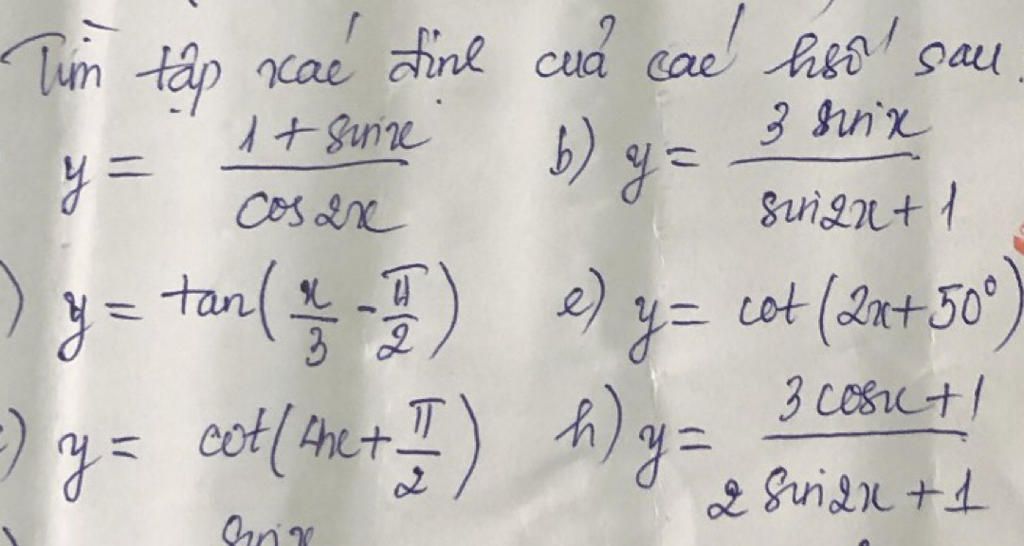 Tìm tập xác định của các hsố sau
y = (1 + sin x)/(cos 2x) b) y = (3 sin x)/(sin 2x + 1)
) y = tan(x/3 - π/2) e) y = cot(2x + 50°)
) y = cot(4x + π/2) h) y = (3 cos x + 1)/(2 sin 2x + 1)
sin x